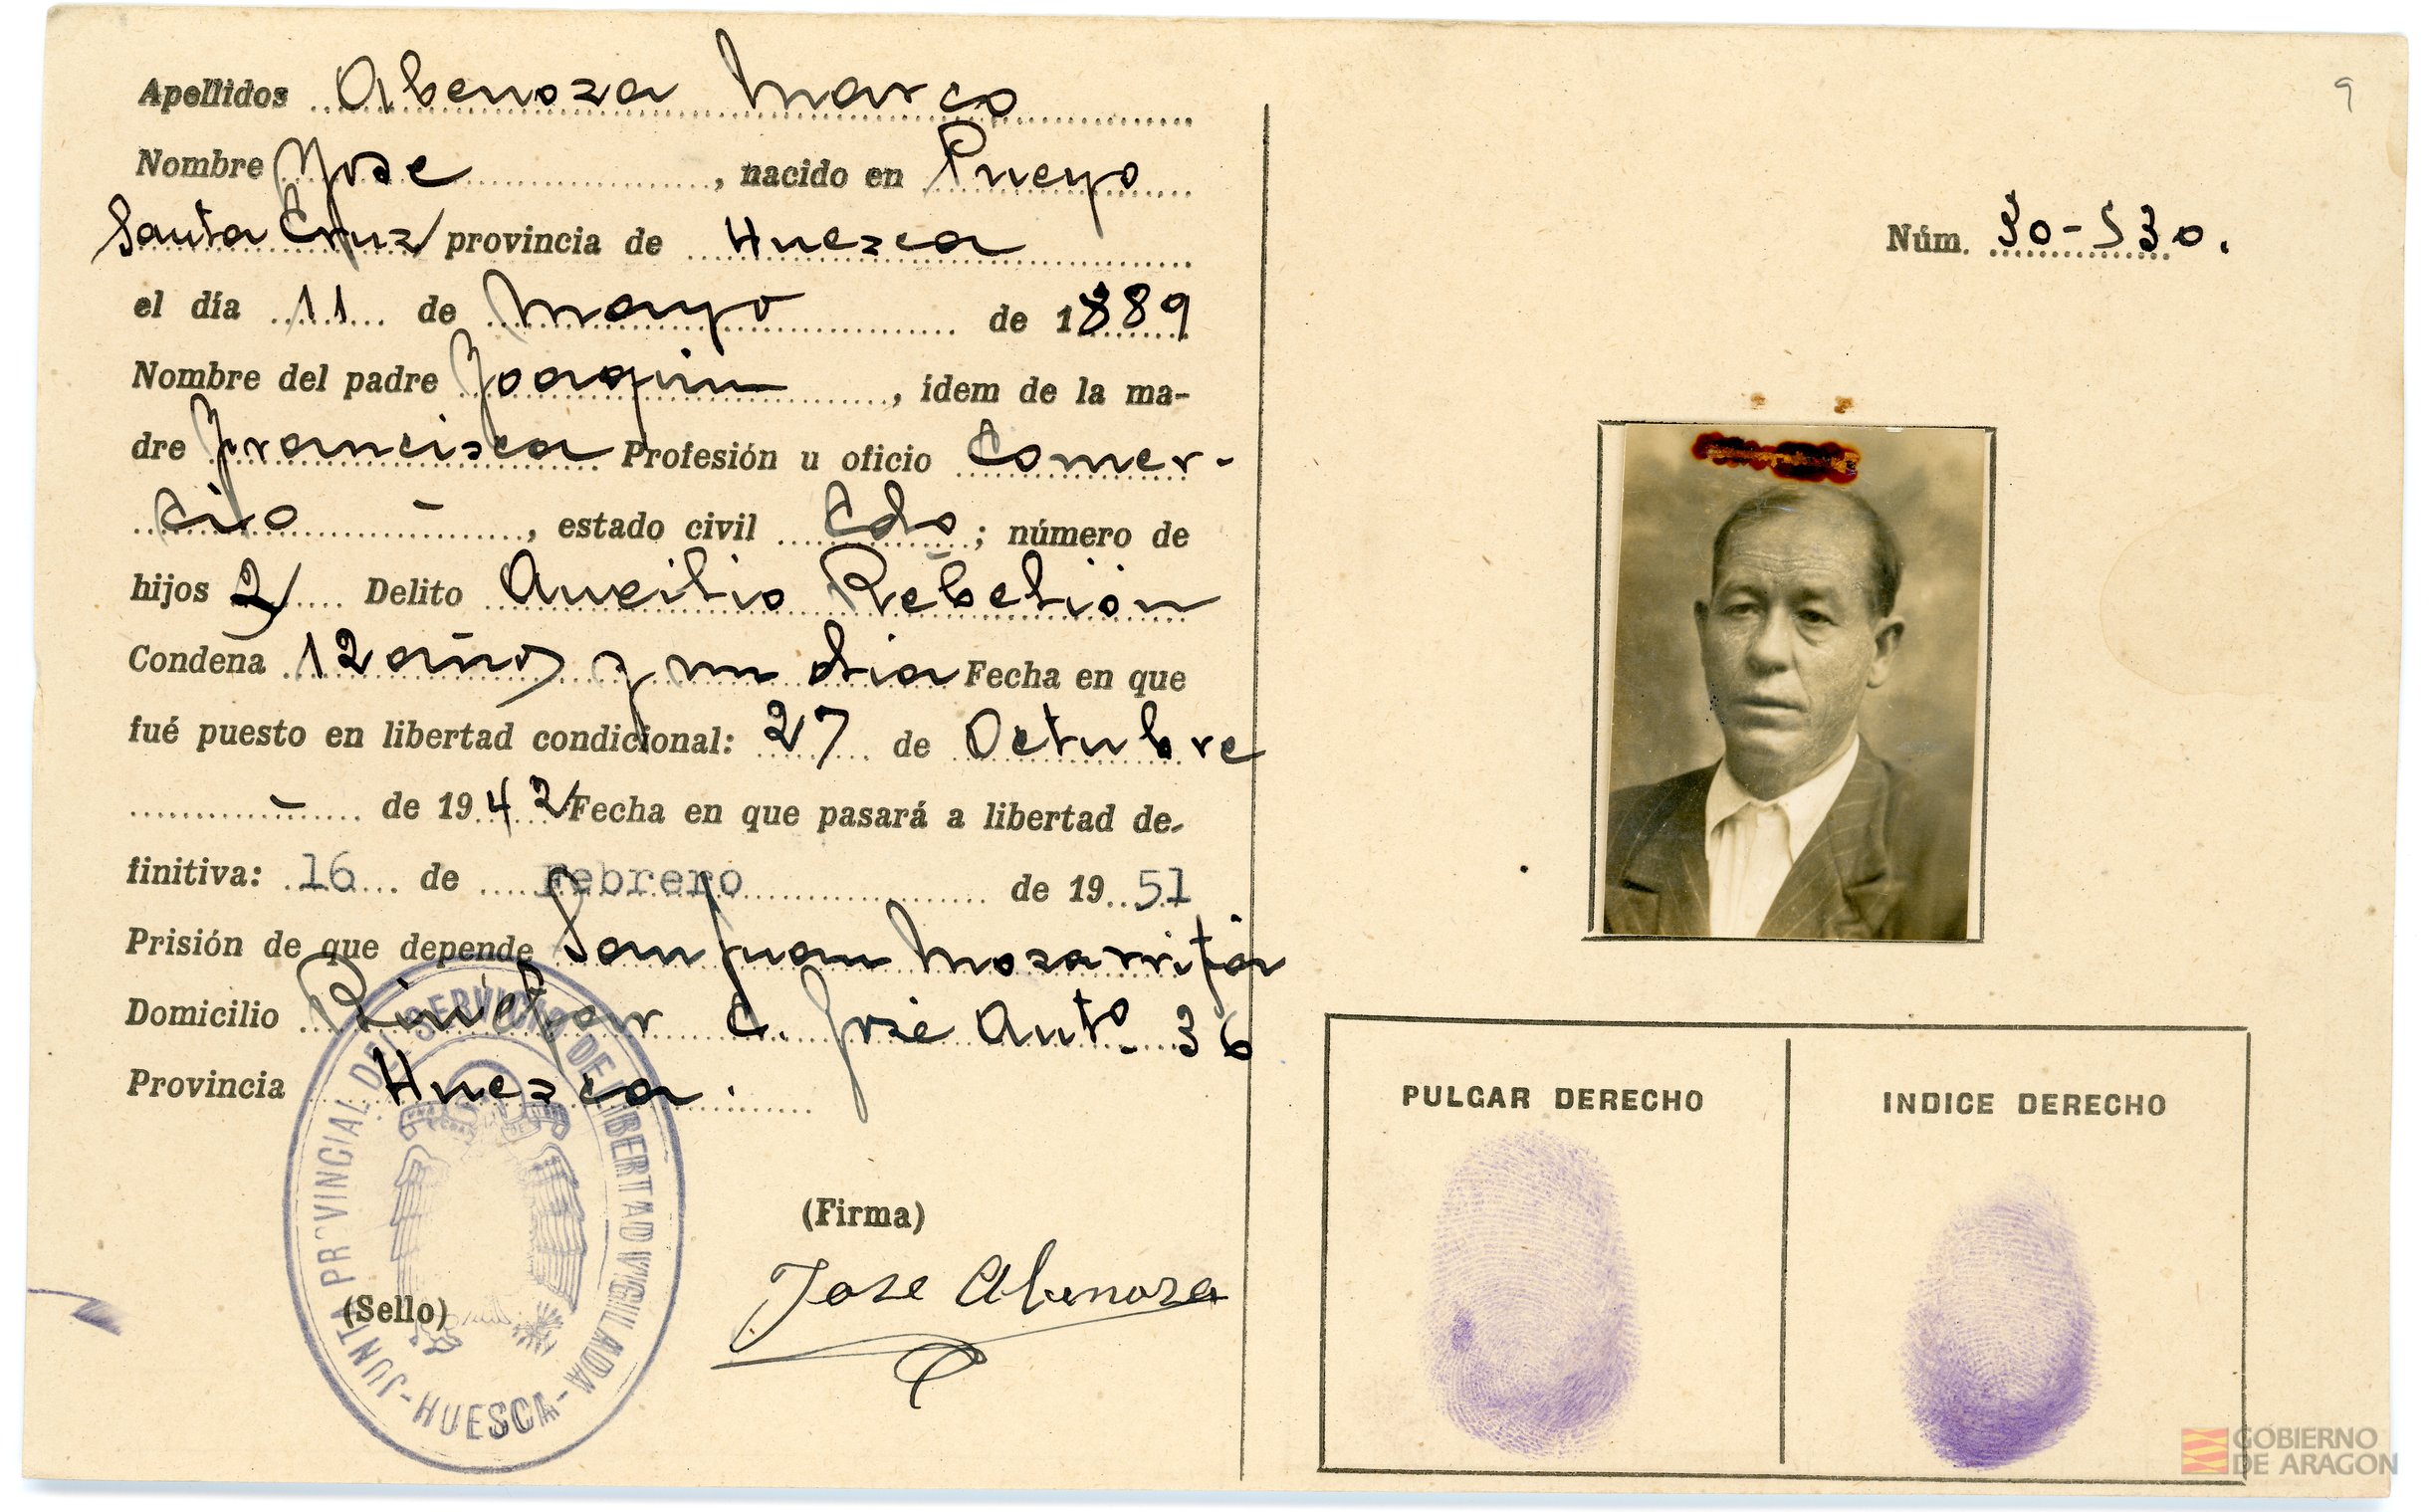 Apellidos Abenoza Marco
Nombre Jose, nacido en Pueyo
Santa Cruz provincia de Huesca
el día 11 de Mayo de 1889
Nombre del padre Joaquin, idem de la ma-
dre Francisca Profesión u oficio Comer-
cio -, estado civil Cdo; número de
hijos 2 Delito Auxilio Rebelión
Condena 12 años y un dia Fecha en que
fué puesto en libertad condicional: 27 de Octubre
- de 1942 Fecha en que pasará a libertad de-
finitiva: 16 de Febrero de 1951
Prisión de que depende San Juan Mozarrifar
Domicilio C. José Antº 36
Provincia Huesca.
(Firma)
Jose Abenoza
(Sello)
JUNTA PROVINCIAL DEL SERVICIO DE LIBERTAD VIGILADA - HUESCA -
9
Núm. 30-530.
PULGAR DERECHO
INDICE DERECHO
GOBIERNO
DE ARAGON